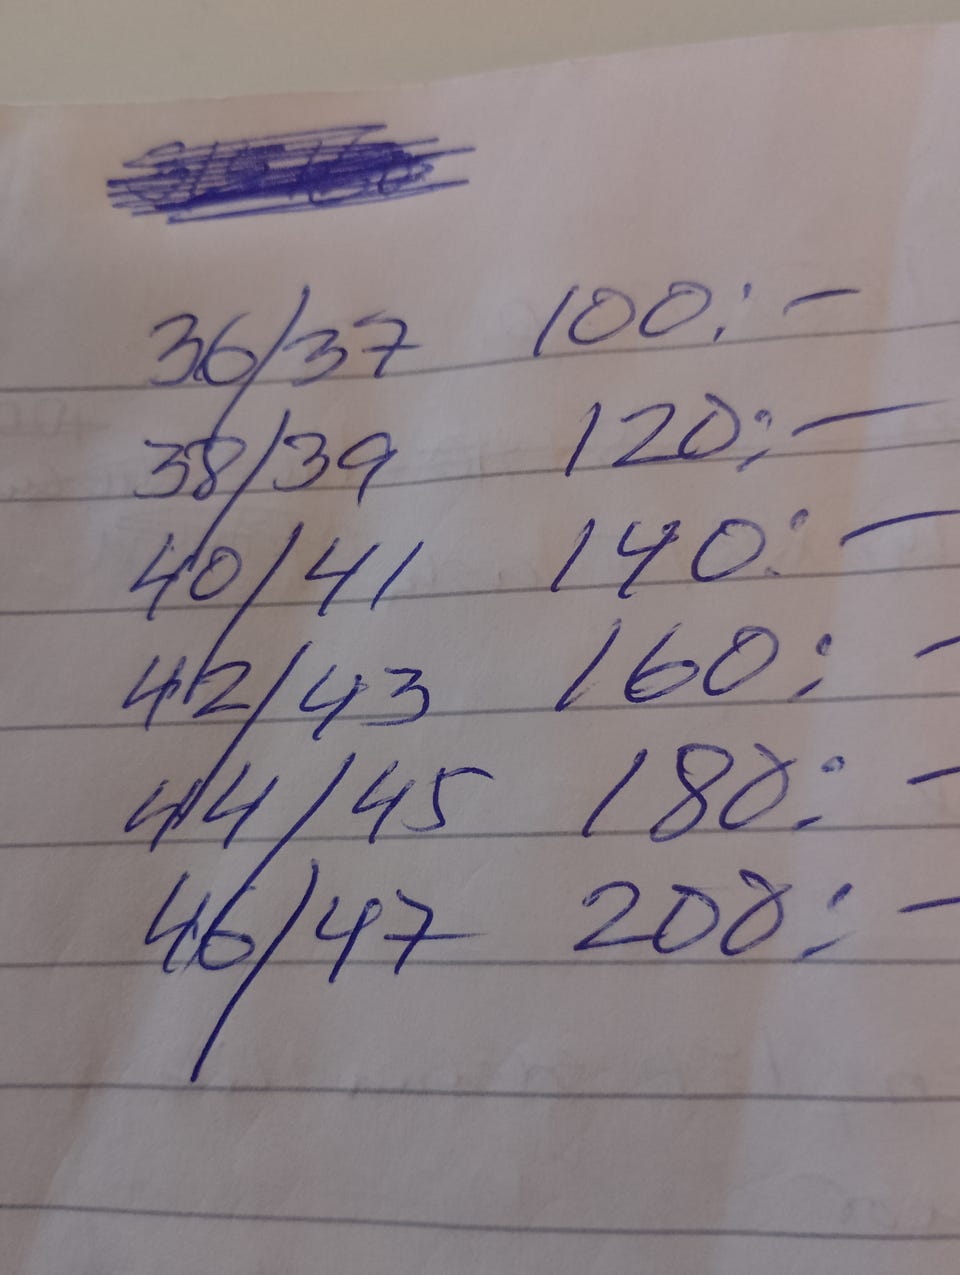 36/37 100:-
38/39 120:-
40/41 140:-
42/43 160:-
44/45 180:-
46/47 200:-